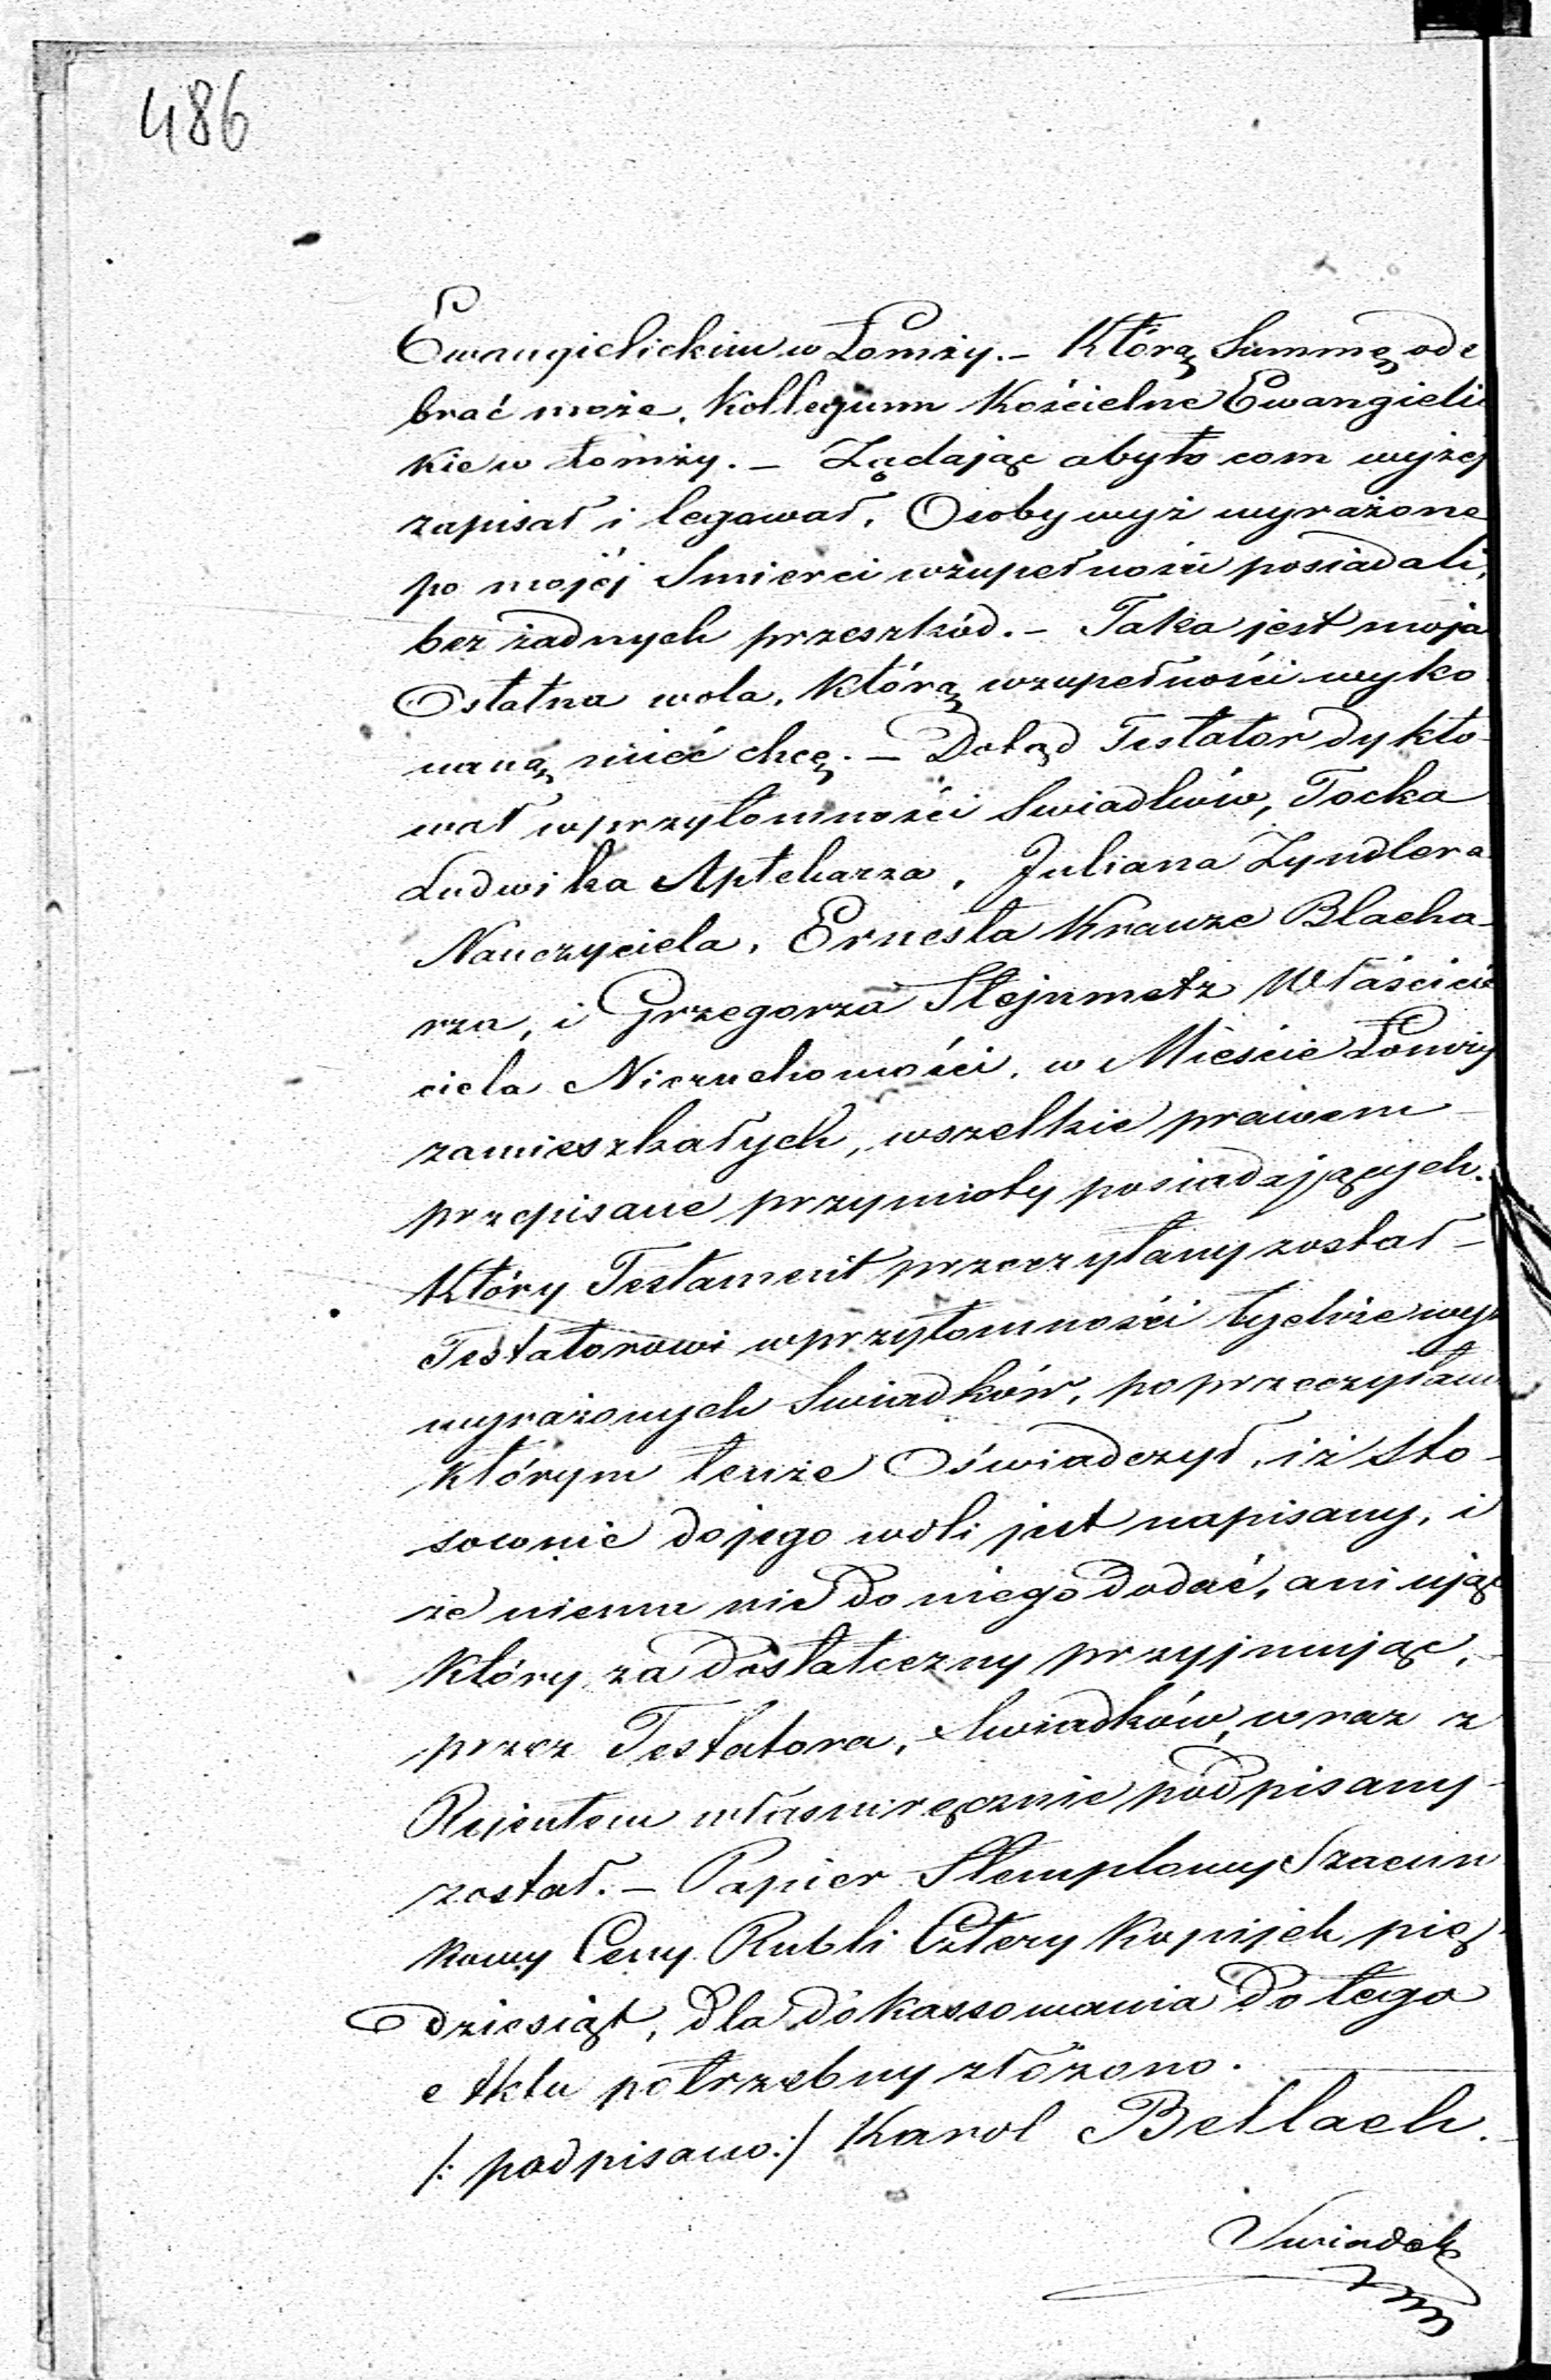 486
Ewangielickim w Łomży. – Którą Summę ode
brać może, Kollegium Kościelne Ewangielic
kie w Łomży. – Żądając aby to com wyżej
zapisał i legował, Osoby wyż wyrażone
po mojéj Smierci wzupełności posiadali,
bez żadnych przeszkód. – Taka jest moja
Ostatna wola, którą wzupełności wyko
naną mieć chcę. – Dotąd Testator dykto-
wał wprzytomności Swiadków, Tocka
Ludwika Aptekarza, Juliana Zyndlera
Nauczyciela, Ernesta Krauze Blacha-
rza, i Grzegorza Stejnmetz Właścici
ciela Nieruchomości, w Mieście Łomży
zamieszkałych, wszelkie prawem –
przepisane przymioty posiadających.
Który Testament przeczytany został –
Testatorowi wprzytomności tychże wyż
wyrażonych Swiadków, po przeczytaniu
którym tenże Oświadczył, iż Sto-
sownie do jego woli jest napisany, i
że niema nic do niego dodać, ani ująć
który za dostateczny przyjmując, –
przez Testatora, Swiadków, wraz z
Rejentem własnoręcznie podpisany –
został. – Papier Stemplowy Szacun
kowy Ceny Rubli Cztery Kopijek pięć
dziesiąt, dla dokassowania do tego
Aktu potrzebny złożono.
/: podpisano :/ Karol Betlach. –
Swiadek